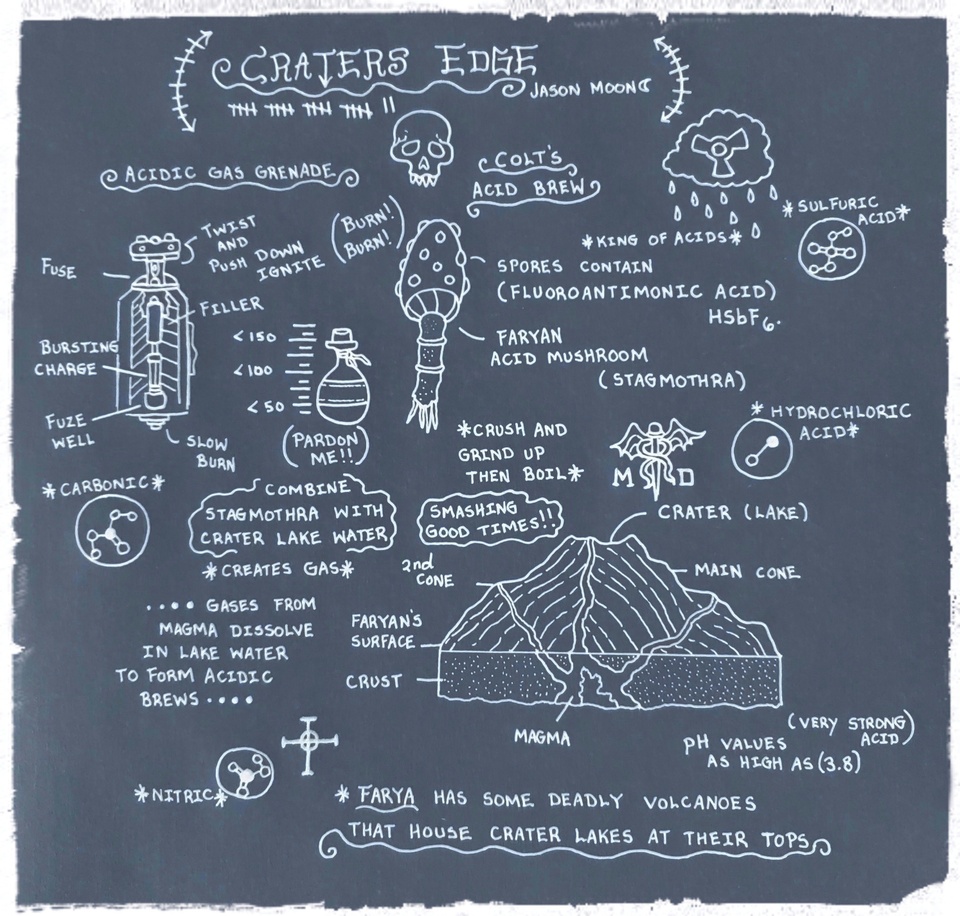 CRATERS EDGE
JASON MOON
ACIDIC GAS GRENADE
COLT'S
ACID BREW
*SULFURIC
ACID*
TWIST
AND
PUSH DOWN
IGNITE
(BURN!!
BURN!)
*KING OF ACIDS*
FUSE
SPORES CONTAIN
(FLUOROANTIMONIC ACID)
HSbF6.
FILLER
BURSTING
CHARGE
<150
<100
<50
FARYAN
ACID MUSHROOM
(STAGMOTHRA)
FUZE
WELL
SLOW
BURN
(PARDON
ME!!)
*CRUSH AND
GRIND UP
THEN BOIL*
M D
*HYDROCHLORIC
ACID*
*CARBONIC*
COMBINE
STAGMOTHRA WITH
CRATER LAKE WATER
*CREATES GAS*
SMASHING
GOOD TIMES!!
CRATER (LAKE)
2nd
CONE
MAIN CONE
FARYAN'S
SURFACE
CRUST
MAGMA
.... GASES FROM
MAGMA DISSOLVE
IN LAKE WATER
TO FORM ACIDIC
BREWS ....
(VERY STRONG
ACID)
pH VALUES
AS HIGH AS (3.8)
*NITRIC*
* FARYA HAS SOME DEADLY VOLCANOES
THAT HOUSE CRATER LAKES AT THEIR TOPS